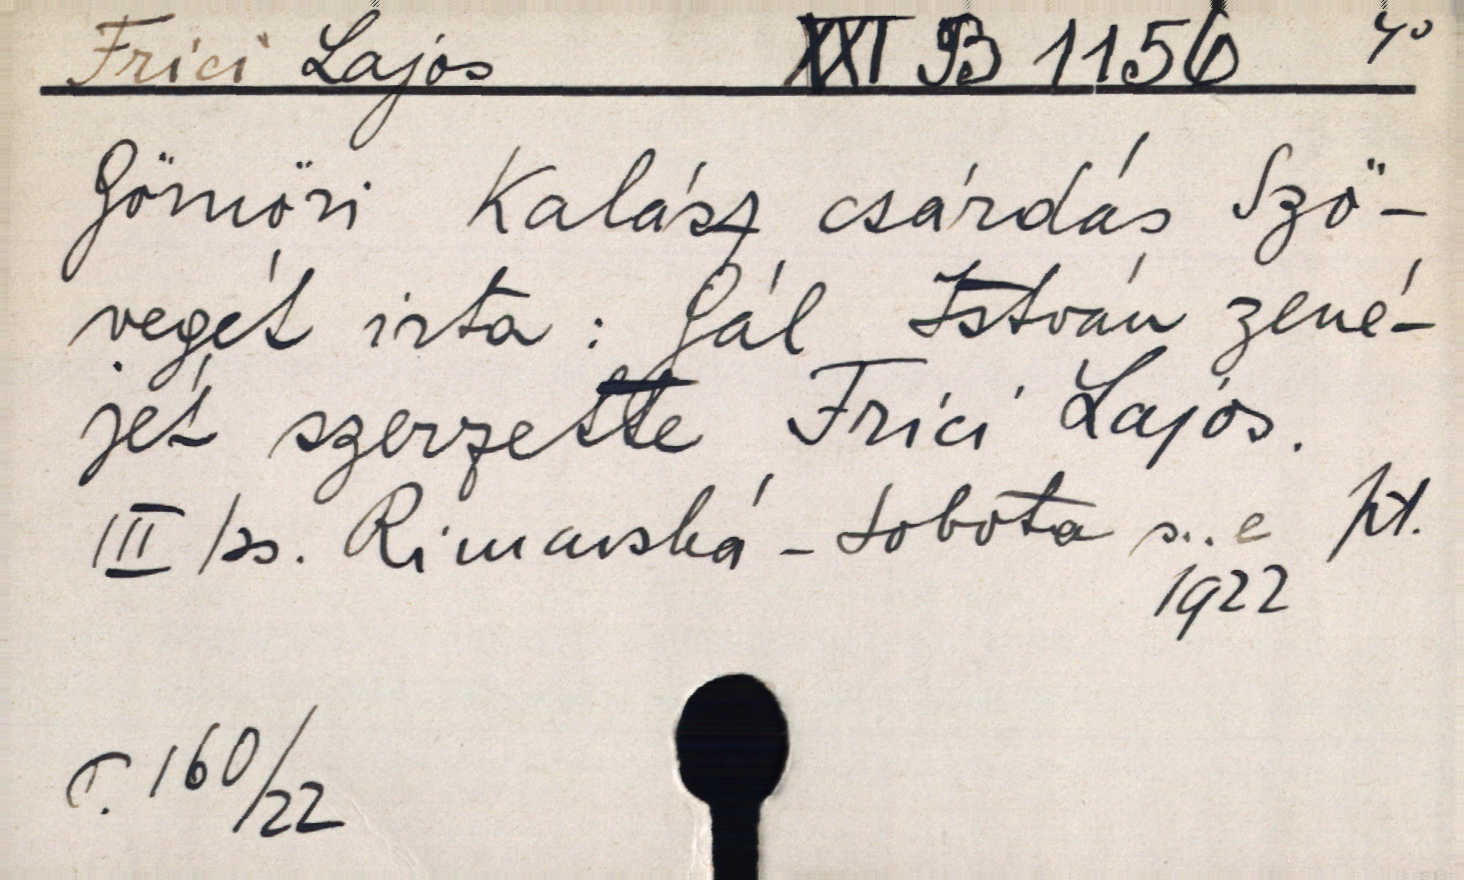 Frici Lajos XXI B 1156 4°
Gömöri Kalász csárdás Szö-
vegét irta: Gál István zené-
jét szerzette Frici Lajos.
III Iss. Rimavská-Sobota s..e kt.
1922
T. 160/22